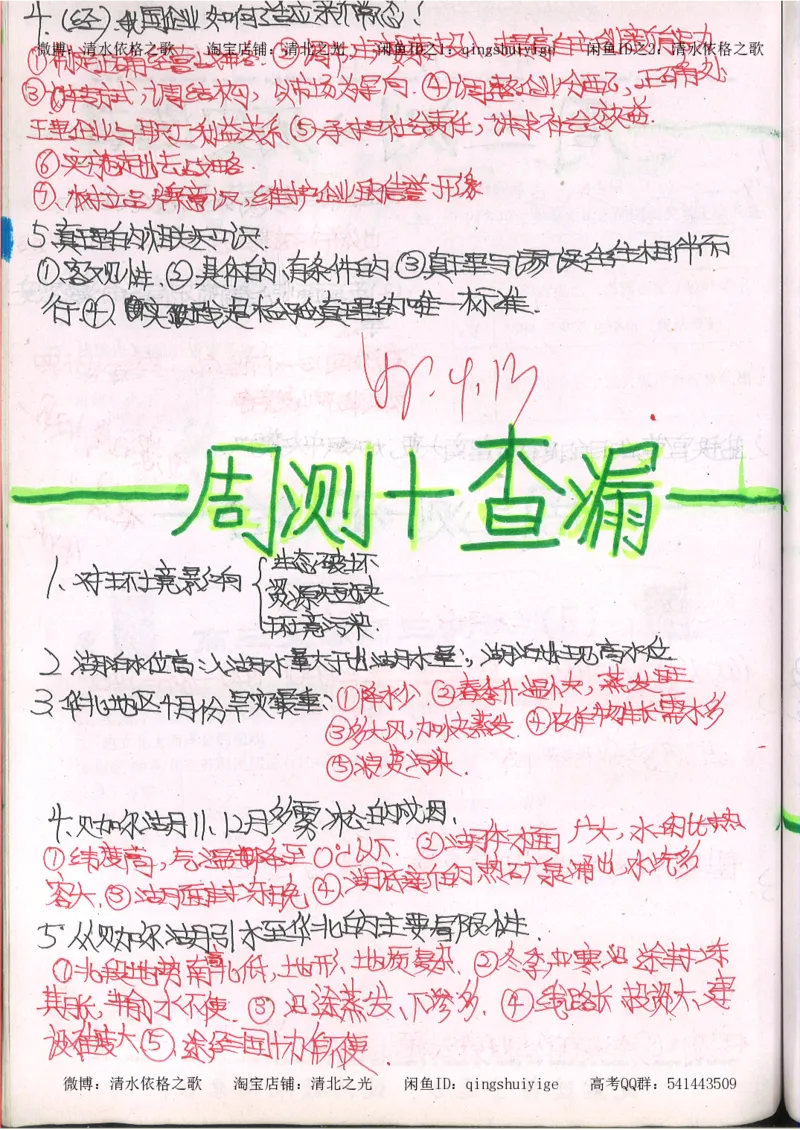 4.(经)我国企业如何适应新常态?
微博:清水依格之歌 淘宝店铺:清北之光 闲鱼ID之1:qingshuiyige 闲鱼ID之2:清水依格之歌
①制定正确经营战略.②提高自主创新能力
③转方式,调结构,以市场为导向.④调整企业分配,正确处
理企业与职工利益关系⑤承担社会责任,讲求社会效益.
⑥实施走出去战略.
⑦树立品牌意识,维护企业的信誉形象
5.真理的相关知识.
①客观性.②具体的、有条件的③真理与谬误往往相伴而
行.④、实践是检验真理的唯一标准.
4.13
周测+查漏
1、对环境影响
生态破坏
资源短缺
环境污染
2.湖泊水位高:入湖水量大于出湖水量;湖泊出现高水位
3.华北地区4月份旱灾最重:①降水少.②春季升温快,蒸发旺
③多大风,加快蒸发.④农作物生长需水多
⑤浪费污染.
4.贝加尔湖11、12月多雾冰态的成因.
①纬度高,气温都在至0°以下.②湖体水面广大,水的比热
容大.③湖面封冻晚.④湖底产的热矿泉涌出,水汽多
5.从贝加尔湖引水至华北的主要局限性.
①北段地势南高北低,地形、地质复杂.②冬季严寒沿途封冻
期长,输水不便.③沿途蒸发、下渗多.④线路长投资大,建
设难度大⑤途经国十办自便
微博:清水依格之歌 淘宝店铺:清北之光 闲鱼ID:qingshuiyige 高考QQ群:541443509